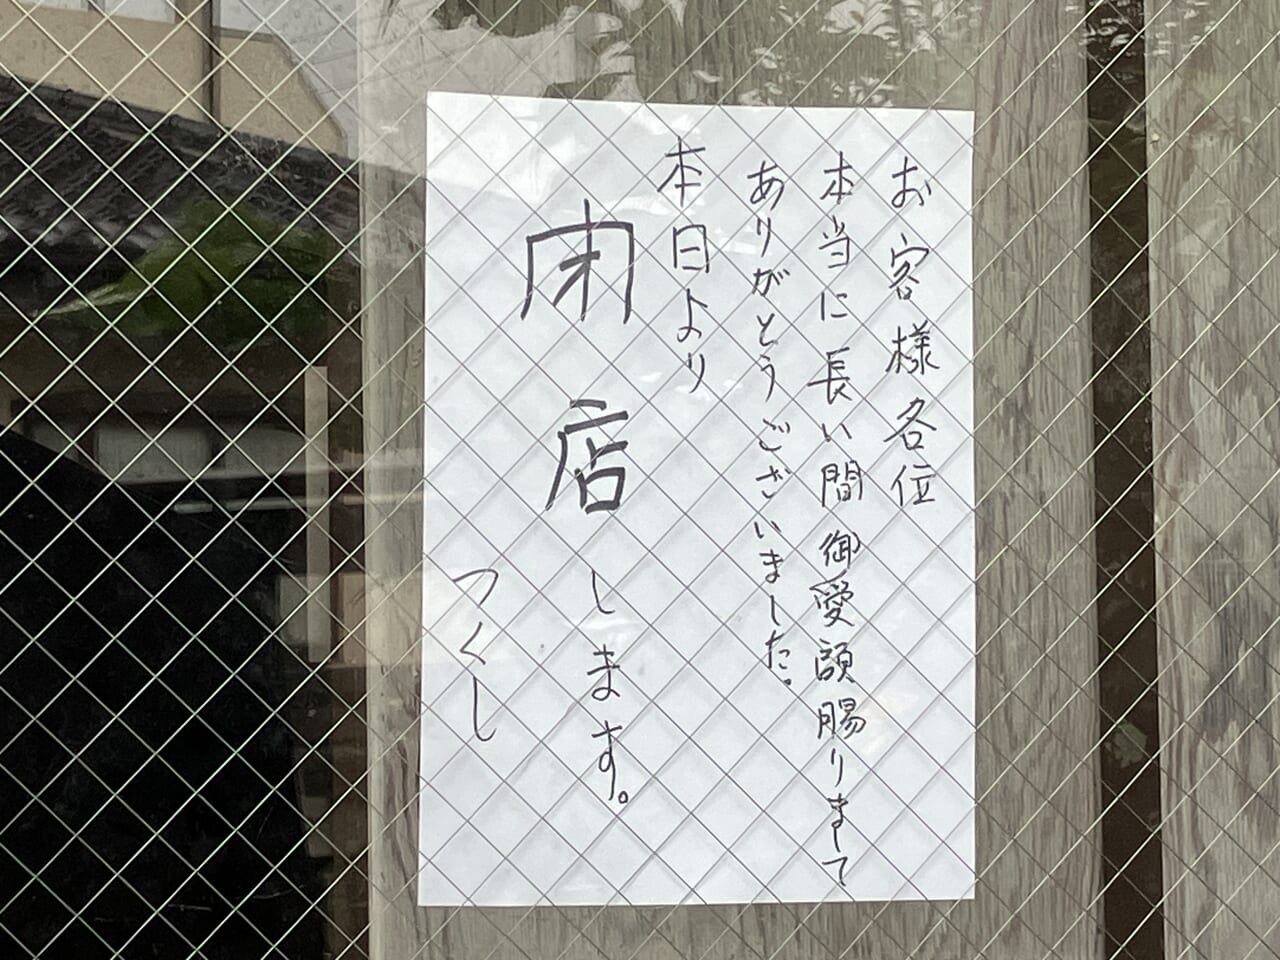 お客様各位
本当に長い間御愛顧賜りまして
ありがとうございました。
本日より
閉店します。
つくし